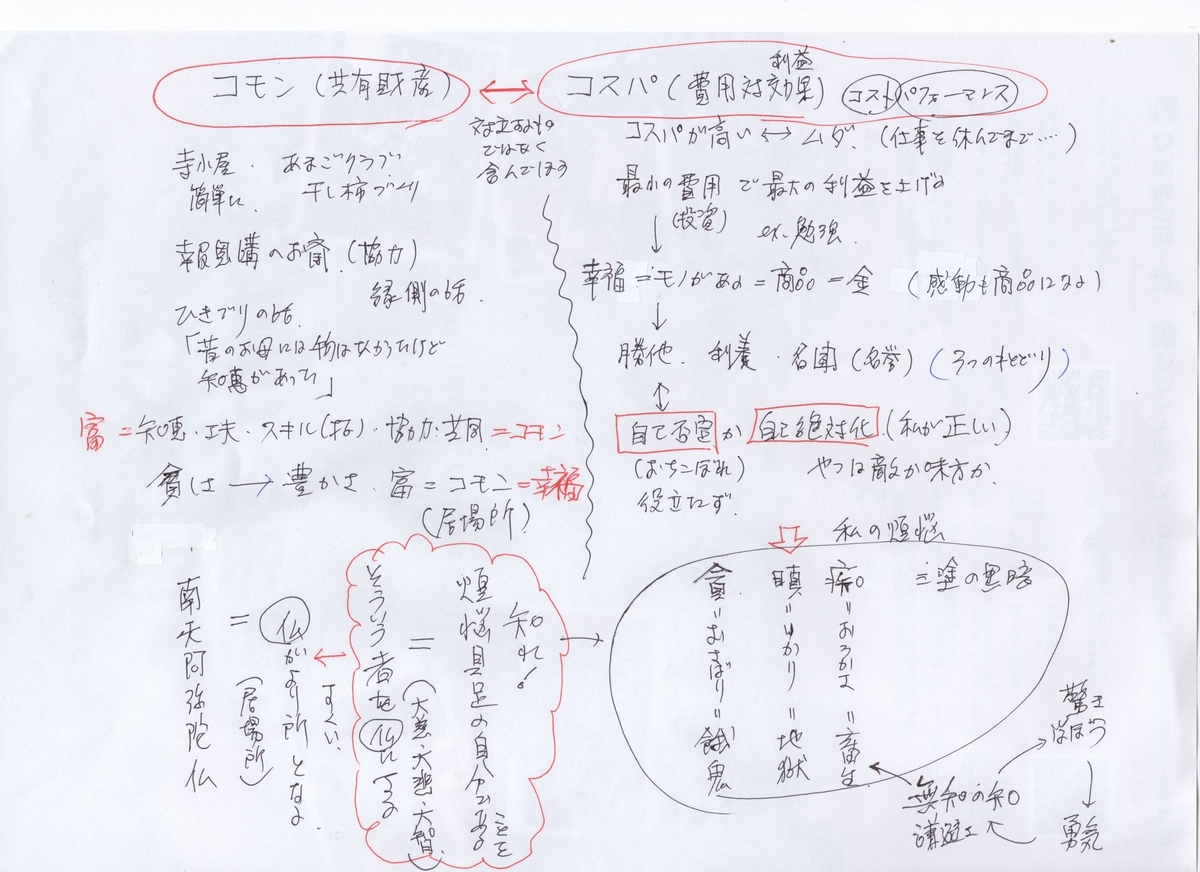 コモン (共有財産)
↔
利益
コスパ (費用対効果) コスト パフォーマンス
対立するもの
ではなく
含んでいます
コスパが高い ↔ ムダ. (仕事を休んでまで‥‥)
寺小屋. あまごクラブ.
簡単に. 干し柿づくり
最小の費用 で最大の利益を上げる
(投資) ex. 勉強.
報恩講のお斎. (協力)
縁側の話.
幸福 = モノがある = 商品 = 金 (感動も商品になる)
ひきづりの話.
「昔のお母には物はなかったけど
知恵があった」
勝他. 利養. 名聞 (名誉) (3つのもとどり)
富 = 知恵・工夫・スキル(技)・協力・共同 = コモン
自己否定 か 自己絶対化. (私が正しい)
(おちこぼれ) やつは敵か味方か
役立たず.
貧しさ → 豊かさ. 富 = コモン = 幸福
(居場所)
私の煩悩
三塗の黒暗
痴 = おろかさ = 畜生
瞋 = いかり = 地獄
貪 = むさぼり = 餓鬼
知れ!
煩悩具足の自分であることを
=
(大慈・大悲・大智)
そういう者を仏にする
すくい.
仏がより所となる.
(居場所)
=
南無阿弥陀仏
驚き
無知の知
謙遜さ
勇気